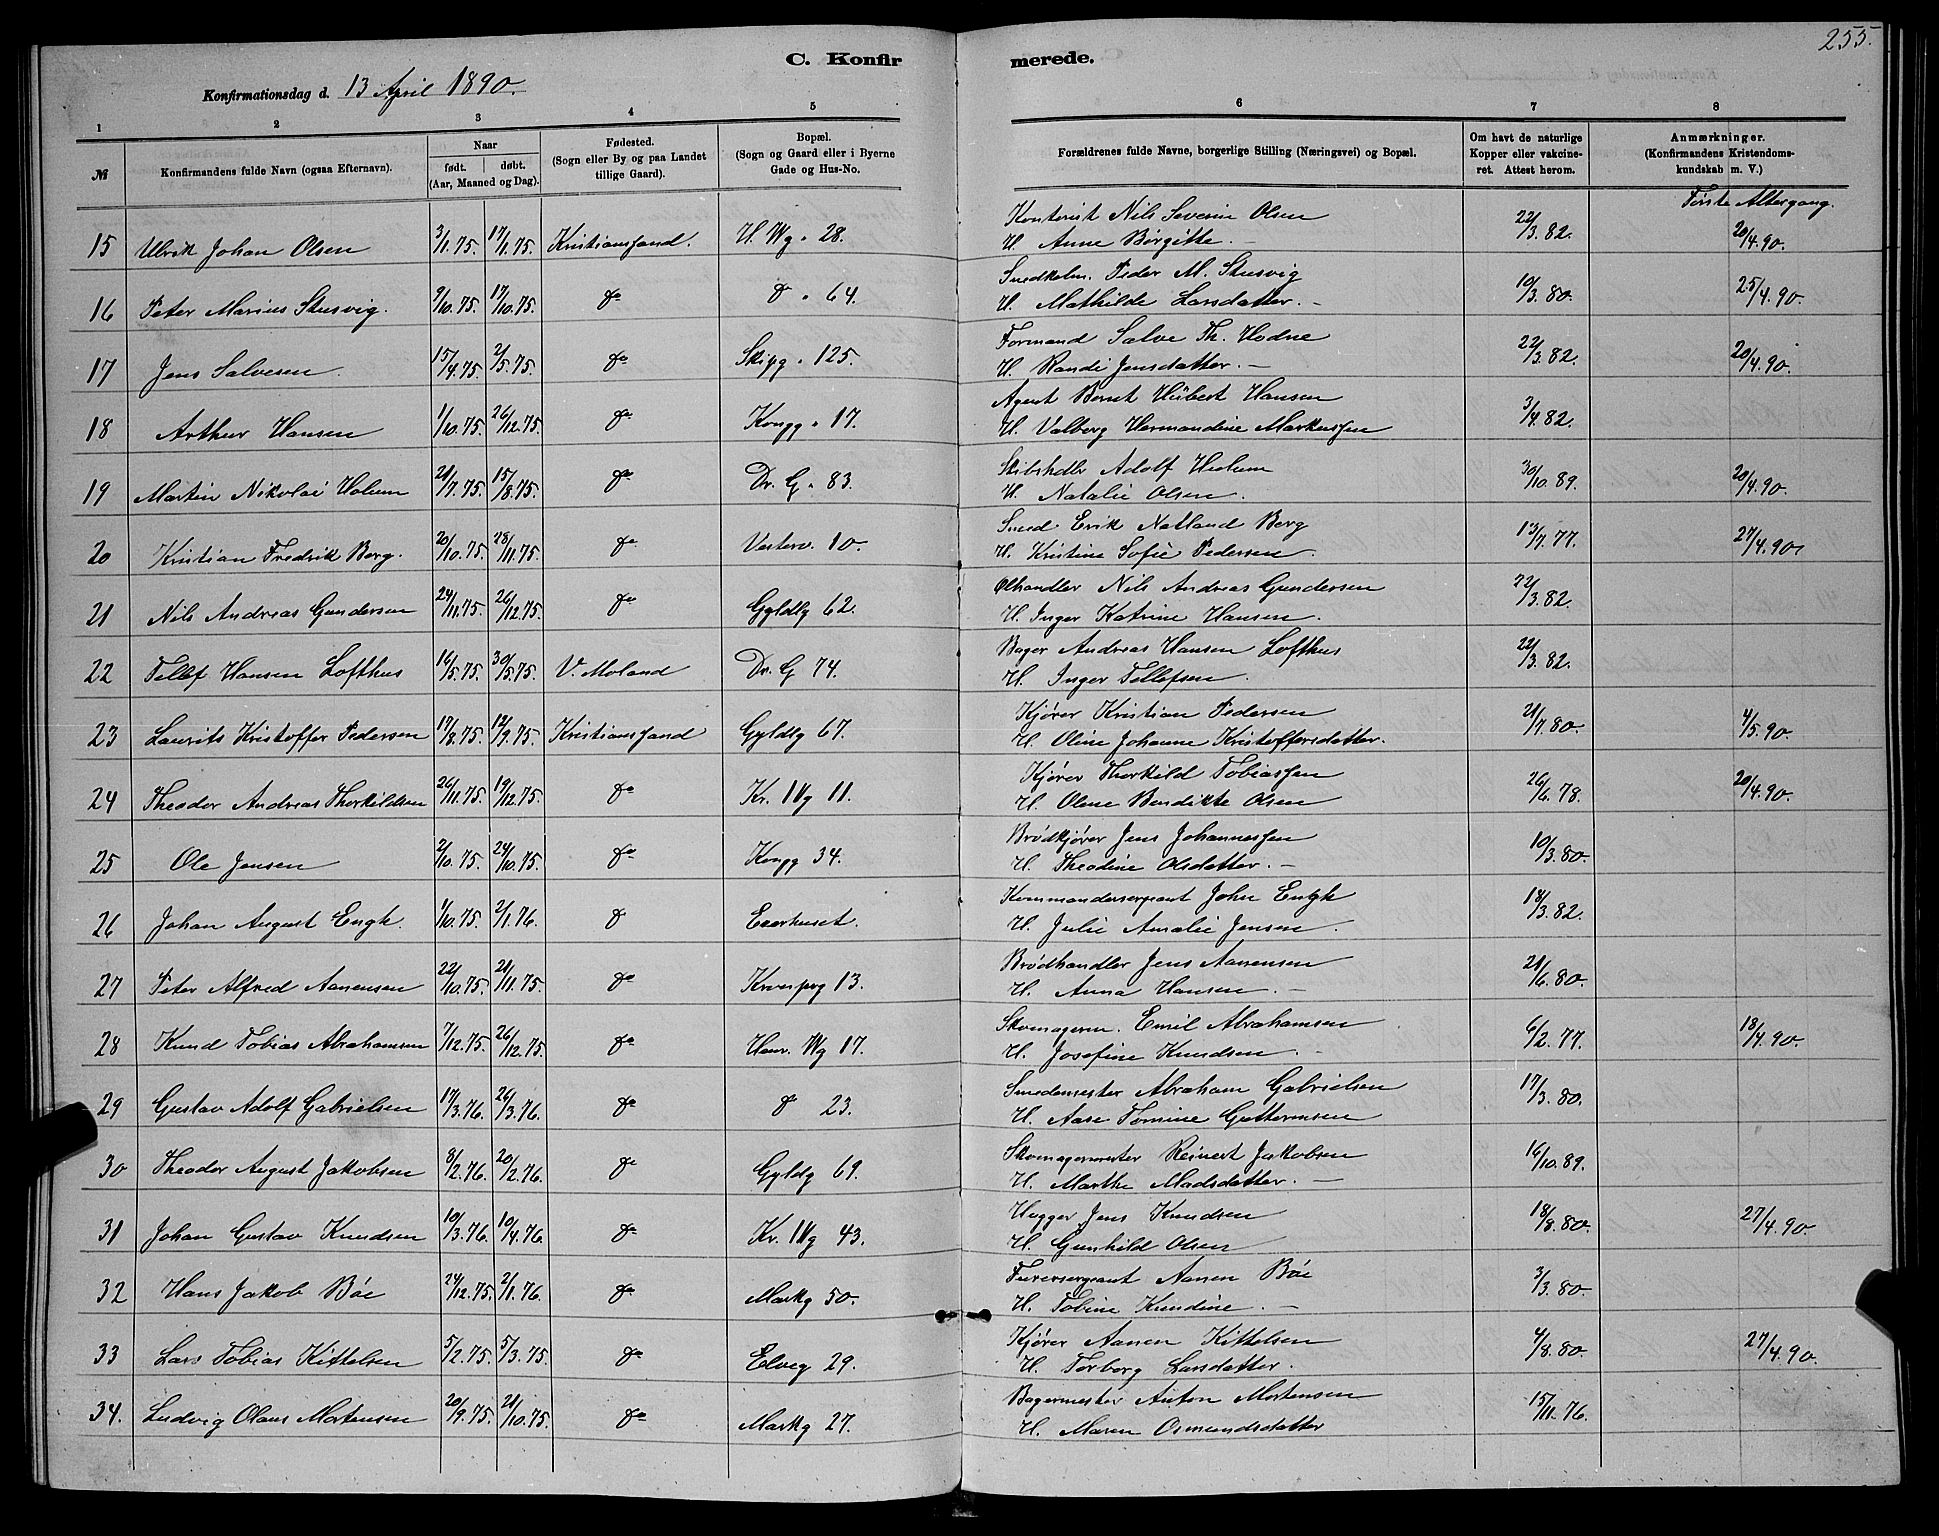 255.
C. Konfirmerede.
Konfirmationsdag d. 13 April 1890.
1 2 3 4 5 6 7 8
№ Konfirmandens fulde Navn (ogsaa Efternavn). Naar født. døbt. (Aar, Maaned og Dag). Fødested. (Sogn eller By og paa Landet tillige Gaard). Bopæl. (Sogn og Gaard eller i Byerne Gade og Hus-No. Forældrenes fulde Navne, borgerlige Stilling (Næringsvei) og Bopæl. Om havt de naturlige Kopper eller vakcineret. Attest herom. Anmærkninger. (Konfirmandens Kristendomskundskab m. V.)
Første Altergang.
15 Ulrik Johan Olsen 3/1.75. 17/1.75. Kristianssand. H. Vg " 28. Kontorist Nils Severin Olsen 22/3.82. 20/4.90.
H. Anne Børgitte. —
16 Peter Marius Stusvig. 9/10.75. 17/10.75. do do " 64. Smedkolm. Peder M. Stusvig 10/3.80. 25/4.90.
H. Mathilde Larsdatter. —
17 Jens Salvesen. 15/4.75. 2/5.75. do Skipg " 125. Formand Salve Th. Hodne 22/3.82. 20/4.90.
H. Randi Jensdatter. —
18 Arthur Hansen 1/10.75. 26/12.75. do Kongg " 17. Agent Bernt Hübert Hansen 3/4.82.
H. Valborg Hermandine Markussen
19 Martin Nikolai Holum 21/7.75. 15/8.75. do Dr. G " 83. Skibshdlr Adolf Holum 30/10.89. 20/4.90.
H. Natalie Olsen.
20 Kristian Fredrik Berg. 20/10.75. 28/11.75. do Vesterv. 10. Smed Erik Natland Berg 13/7.77. 27/4.90
H. Kristine Sofie Pedersen.
21 Nils Andreas Gundersen 24/11.75. 26/12.75. do Gyldlg 62. Ølhandler Nils Andreas Gundersen 22/3.82.
H. Inger Katrine Hansen.
22 Tellef Hansen Lofthus 16/5.75. 30/5.75. V. Moland Dr. G 74. Bager Andreas Hansen Lofthus 22/3.82.
H. Inger Tellefsen.
23 Laurits Kristoffer Pedersen 17/8.75. 12/9.75. Kristianssand Gyldlg 67. Kjører Kristian Pedersen 21/7.80. 4/5.90.
H. Oline Johanne Kristoffersdatter.
24 Theodor Andreas Thorkildsen 26/11.75. 19/12.75. do Kr. IVg 11. Kjører Thorkild Tobiassen 26/6.78. 20/4.90.
H. Olene Bendikte Olsen
25 Ole Jensen 2/10.75. 24/10.75. do Kongg 34. Brødkjører Jens Johannessen 10/3.80.
H. Theodine Olsdatter. —
26 Johan August Engh. 1/10.75. 2/1.76. do Exerhuset. Kommandersergeant John Engh 18/3.82.
H. Julie Amalie Jensen.
27 Peter Alfred Aanensen 22/10.75. 21/11.75. do 13. Brødhandler Jens Aanensen 21/6.80.
H. Anna Hansen. —
28 Knud Tobias Abrahamsen 7/12.75. 26/12.75. do Henr. Wg 17. Skomagerm. Emil Abrahamsen 6/2.77. 18/4.90.
H. Josefine Knudsen. —
29 Gustav Adolf Gabrielsen 17/3.76. 26/3.76. do do 23. Smedemester Abraham Gabrielsen 17/3.80.
H. Aase Tomine Guttormsen
30 Theodor August Jakobsen 8/2.76. 20/2.76. do Gyldlg 69. Skomagermester Reinert Jakobsen 16/10.89.
H. Marthe Madsdatter. —
31 Johan Gustav Knudsen 10/3.76. 10/4.76. do Kr. IVg 43. Hugger Jens Knudsen 18/8.80. 27/4.90.
H. Gunhild Olsen
32 Hans Jakob Bøe 24/12.75. 2/1.76. do Markg 50. Furersergeant Aanen Bøe 3/3.80.
H. Tobine Kundine. —
33 Lars Tobias Kittelsen 5/2.75. 5/3.75. do Elveg 29. Kjører Aanen Kittelsen 4/8.80. 27/4.90.
H. Torborg Larsdatter.
34. Ludvig Olaus Mortensen 20/9.75. 21/10.75. do Markg 27. Bagermester Anton Mortensen 15/11.76.
H. Maren Osmundsdatter